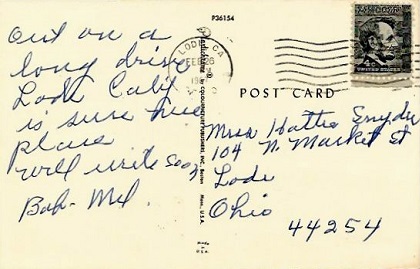 P36154
Out on a
long drive
Lodi Calif
is sure nice
place
Will write soon
Bob - Mel.
LODI, CA
FEB 26
POST CARD
4¢
UNITED STATES
Mrs Hattie Snyder
104 N. Market St
Lodi
Ohio
44254
PUBLISHERS, INC., Boston
Mass., U.S.A.
Made in
U.S.A.